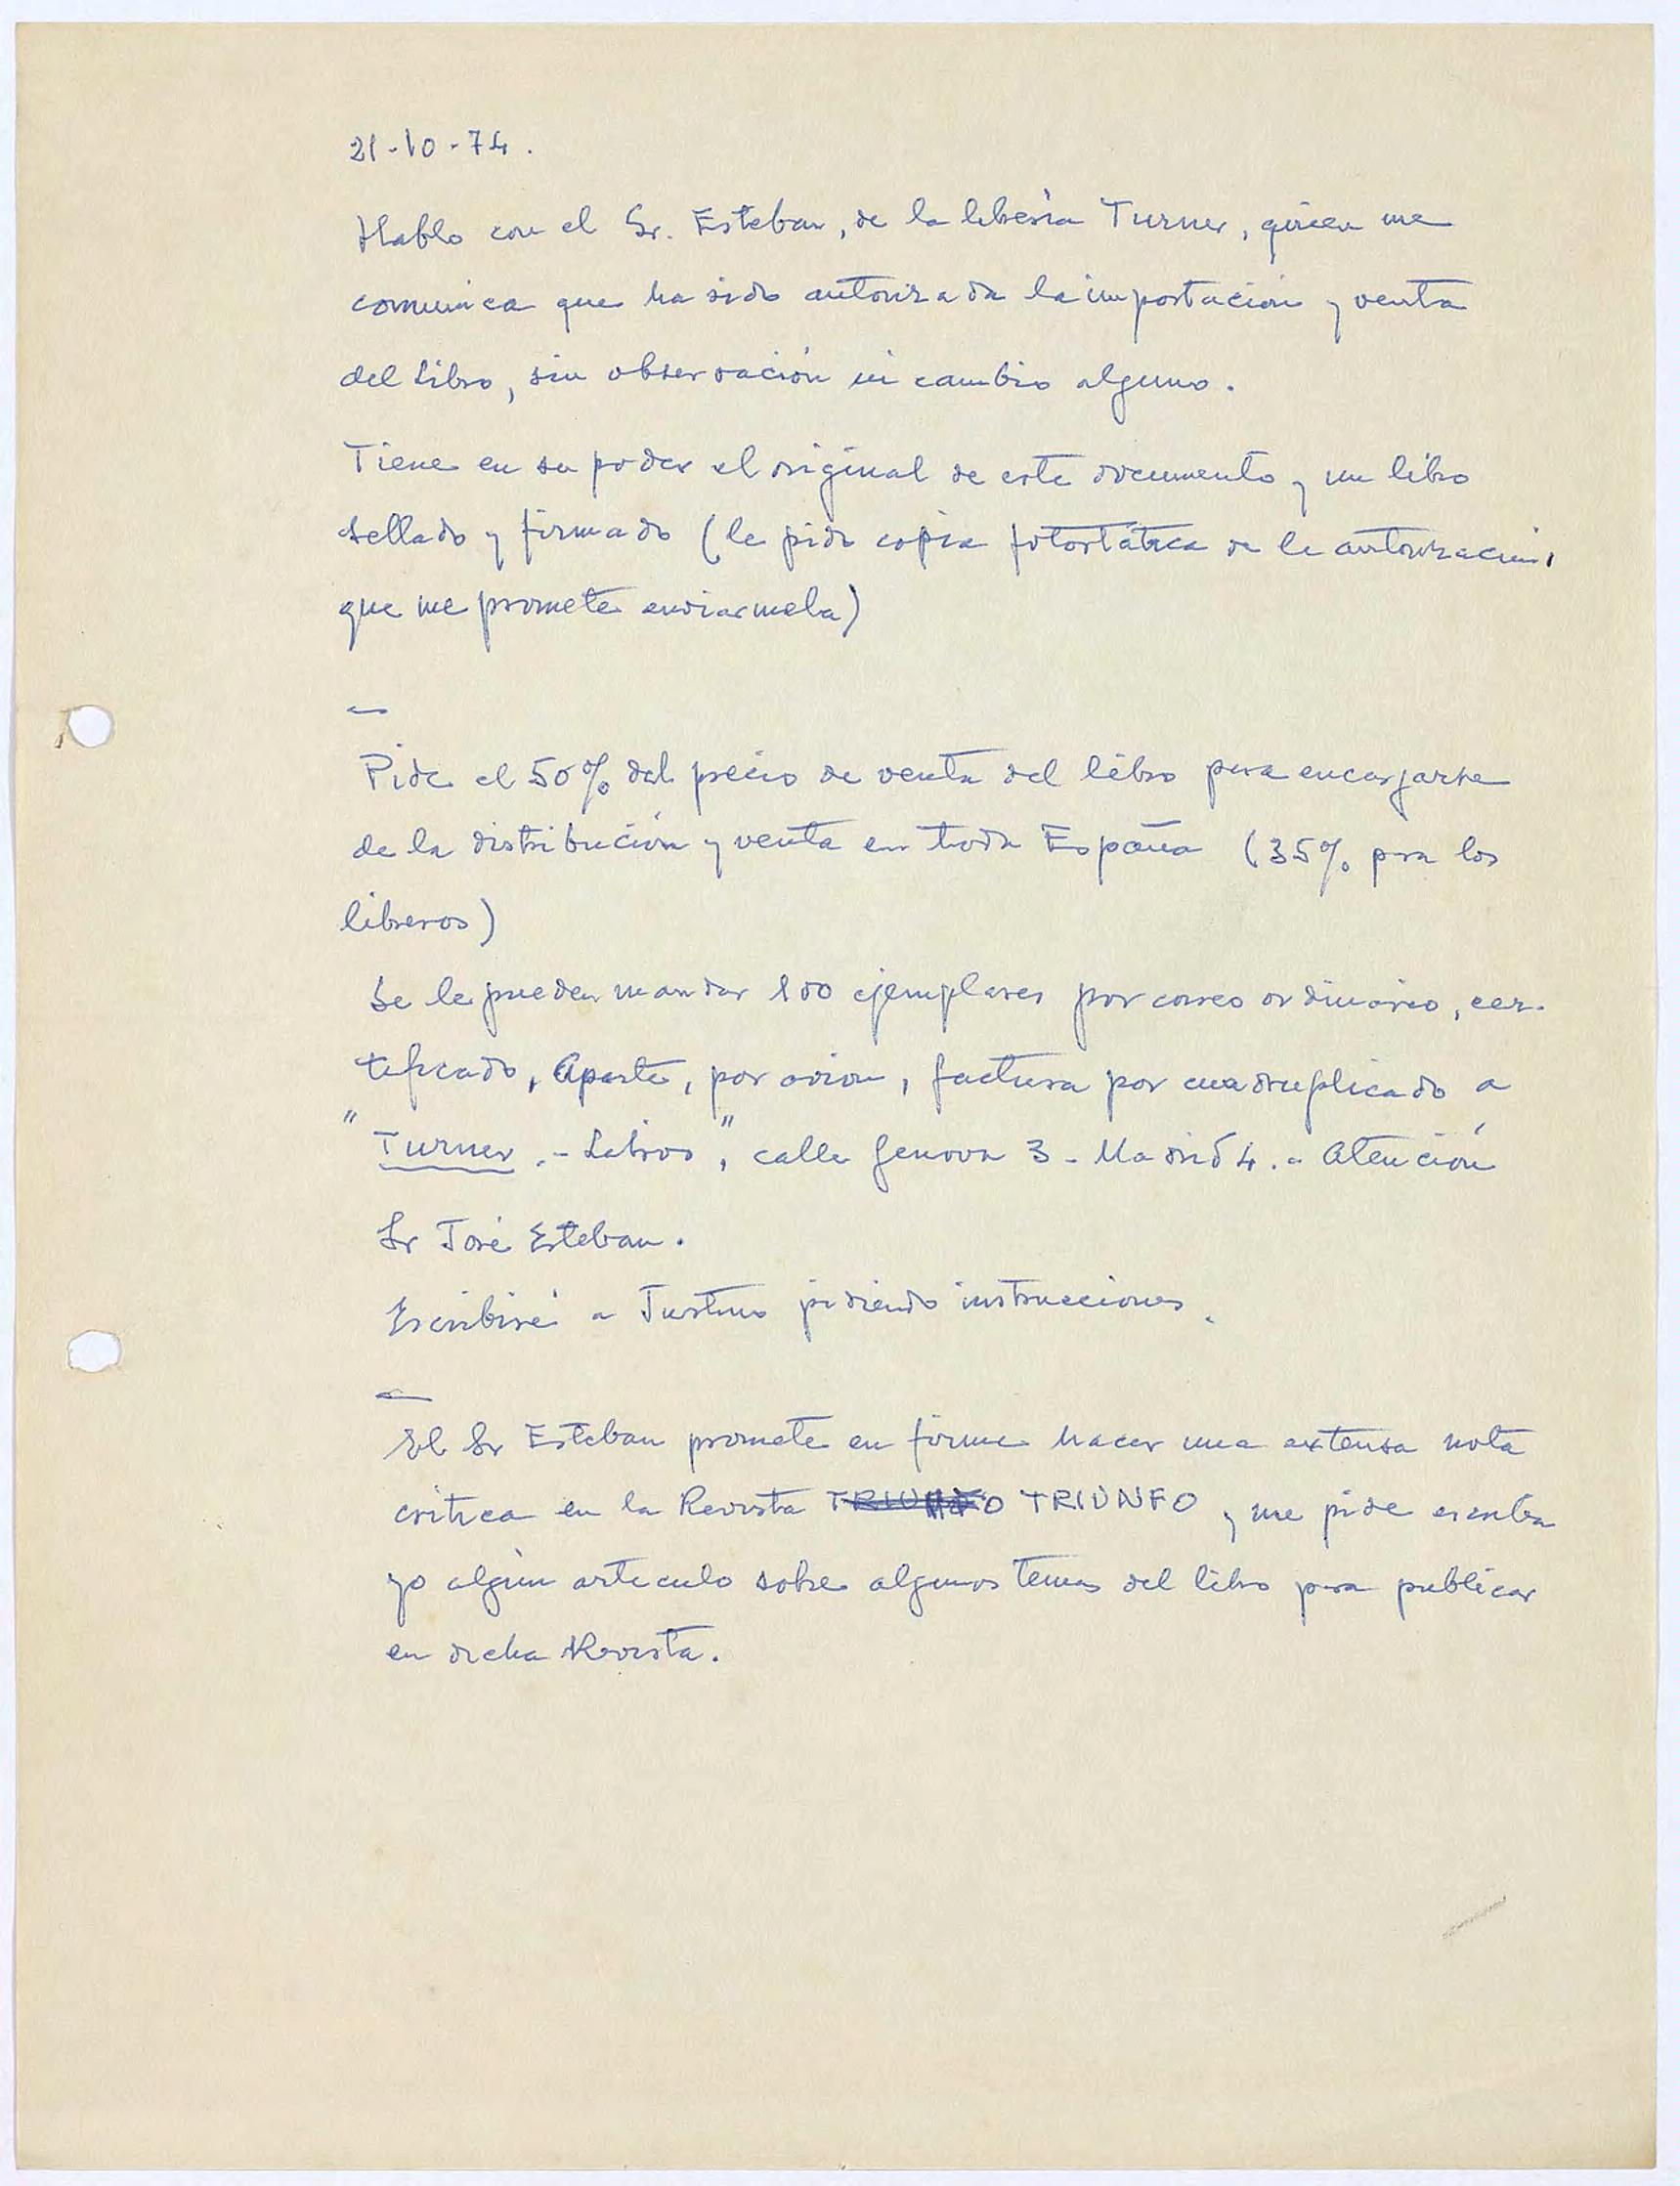 21-10-74.
Hablo con el Sr. Esteban, de la librería Turner, quien me
comunica que ha sido autorizada la importación y venta
del libro, sin observación ni cambio alguno.
Tiene en su poder el original de este documento y un libro
sellado y firmado (le pido copia fotostática de la autorización,
que me promete enviármela)
—
Pide el 50% del precio de venta del libro para encargarse
de la distribución y venta en toda España (35% para los
libreros)
Se le pueden mandar 100 ejemplares por correo ordinario, cer-
tificado, Aparte, por avion, factura por cuadruplicado a
"Turner.- Libros", calle Genova 3 - Madrid 4.- Atención
Sr José Esteban.
Escribiré a Justino pidiendo instrucciones.
—
El Sr Esteban promete en firme hacer una extensa nota
critica en la Revista TRIUNFO TRIUNFO y me pide escriba
yo algún articulo sobre algunos temas del libro para publicar
en dicha Revista.